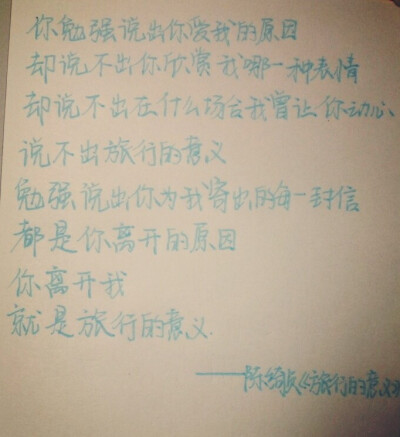 你勉强说出你爱我的原因
却说不出你欣赏我哪一种表情
却说不出在什么场合我曾让你动心
说不出旅行的意义
勉强说出你为我寄出的每一封信
都是你离开的原因
你离开我
就是旅行的意义.
——陈绮贞《旅行的意义》